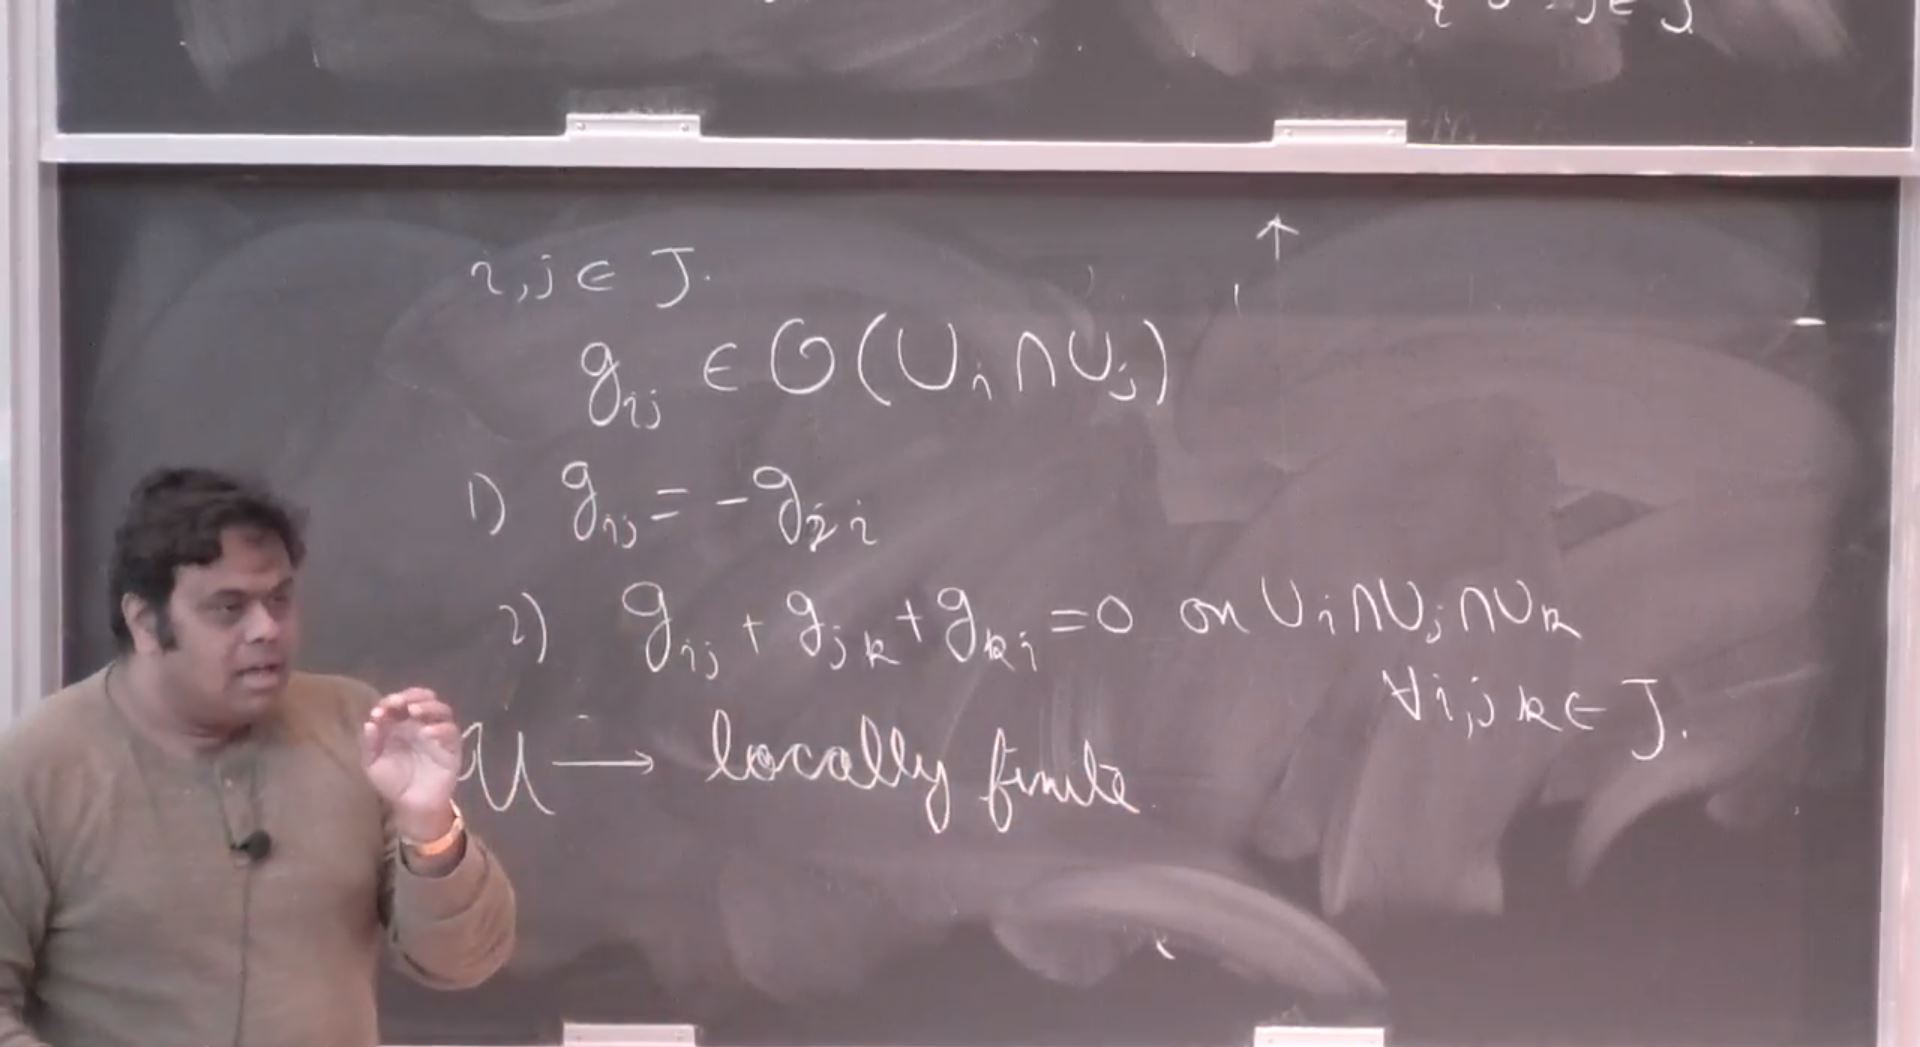 i, j ∈ J.
g_{ij} ∈ O(U_i ∩ U_j)
1) g_{ij} = -g_{ji}
2) g_{ij} + g_{jk} + g_{ki} = 0 on U_i ∩ U_j ∩ U_k
∀ i, j k ∈ J.
U → locally finite